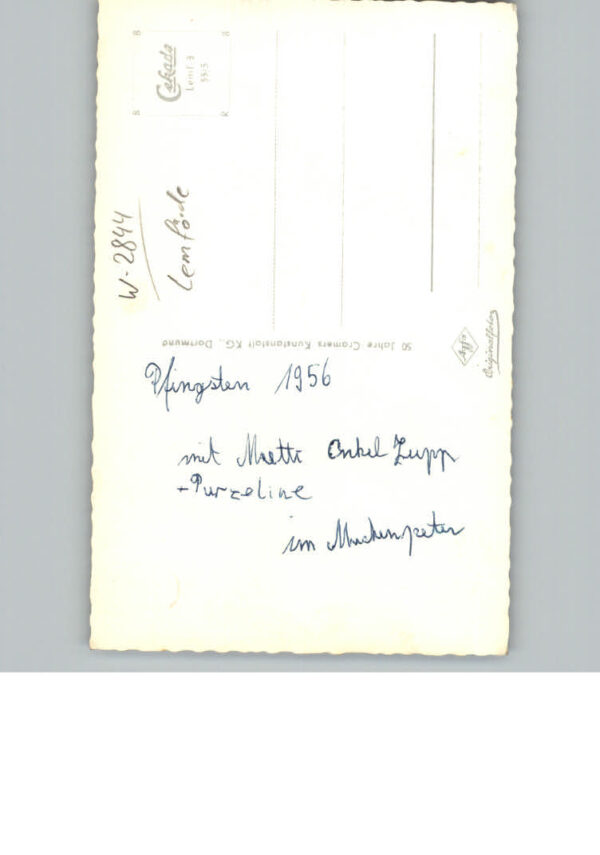 Cekade
Lemf. 3
55/5
W-2844
Lemförde
50 Jahre Cramers Kunstanstalt KG., Dortmund
Agfa
Originalfoto
Pfingsten 1956
mit Mutti Onkel Jupp
+ Purzeline
im